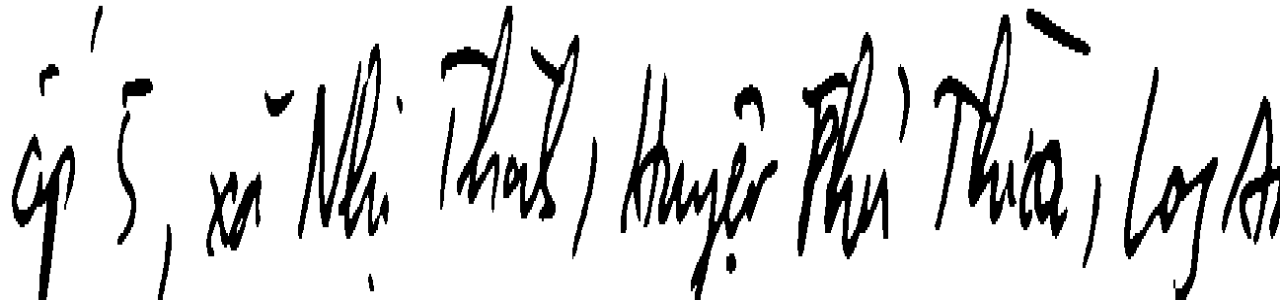 ấp 5, xã Nhị Thành, Huyện Phú Thừa, Long An